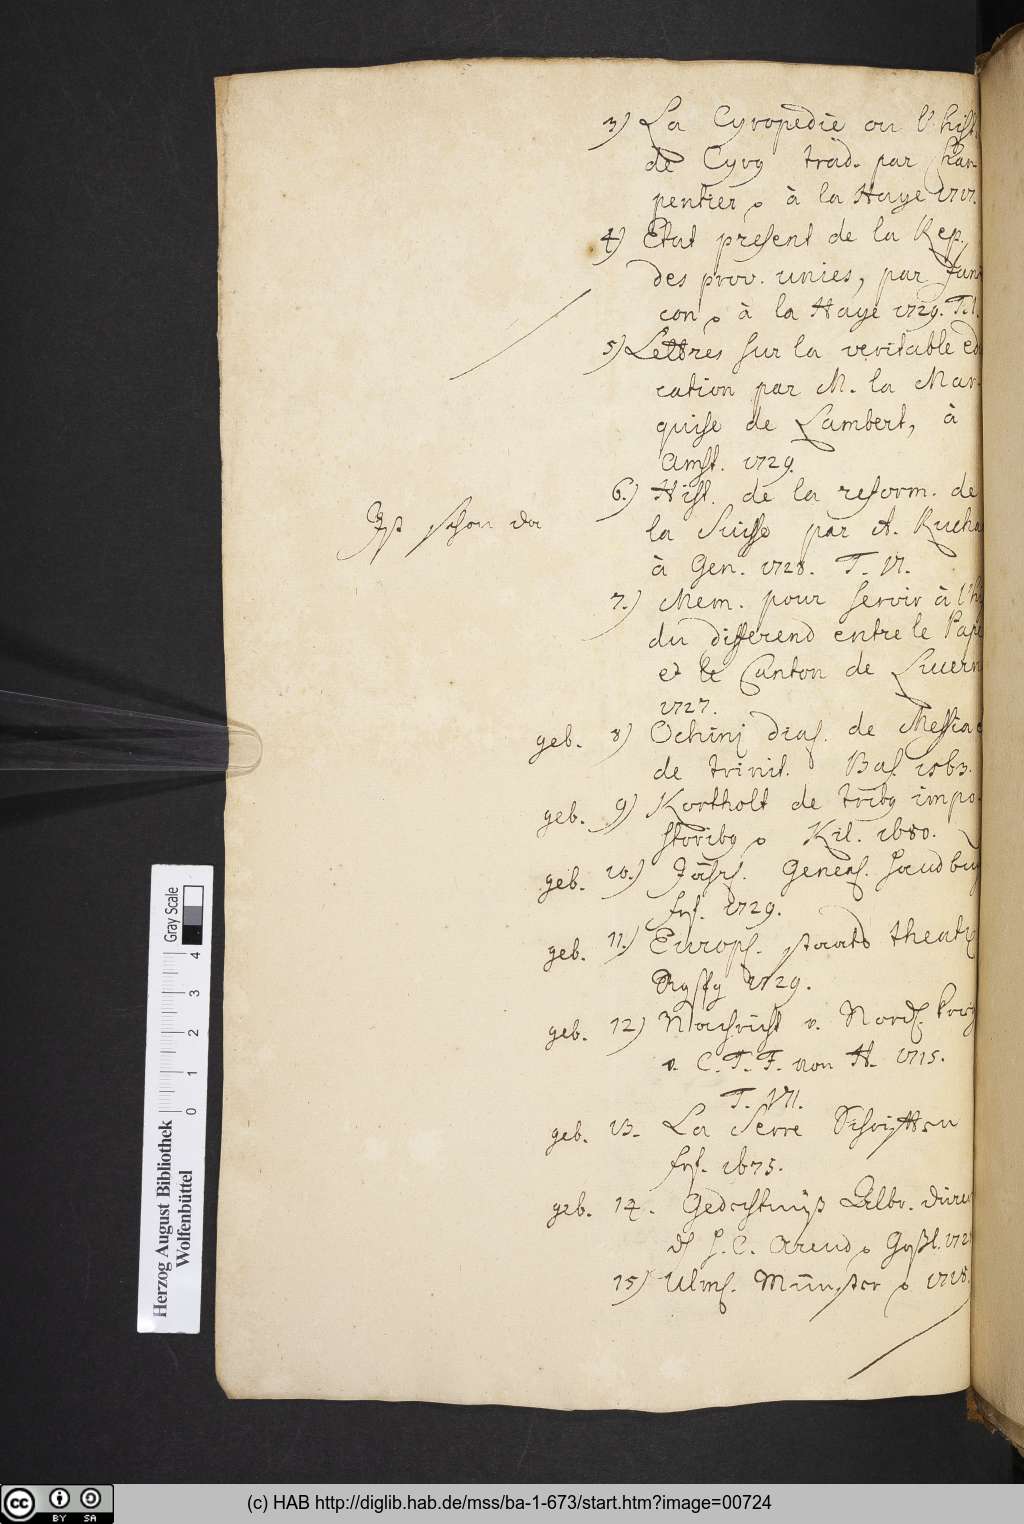 3) La Cyropedie ou l'hist.
de Cyrg trad. par Char-
pentier. à la Haye 1717.
4) Etat present de la Rep.
des prov. unies, par Jani
con. à la Haye 1729. T. I.
5) Lettres sur la veritable edu
cation par M. la Mar-
quise de Lambert, à
Amst. 1729.
Ist schon da
6.) Hist. de la reform. de
la Suisse par A. Rucha
à Gen. 1728. T. VI.
7.) Mem. pour servir à l'h
du differend entre le Pape
et le Canton de Lucern
1727.
geb. 8) Ochinj dial. de Messia
de trinit. Bas. 1563.
geb. 9) Kortholt de tribg impo-
storibg. Kil. 1680.
geb. 10.) Jährl. General.
frf. 1729.
geb. 11.) Europ. staats theatr
1729.
geb. 12) Nachricht v. Nord. Krieg
v. C. T. F. von H. 1715.
T. VII.
geb. 13. La Serre Schrifften
frf. 1675.
geb. 14. Gedächtnüß
H. C. Arend. 172
15) Ulm. Münster. 1718.
Herzog August Bibliothek
Wolfenbüttel
Gray Scale
0 1 2 3 4
cc BY SA
(c) HAB http://diglib.hab.de/mss/ba-1-673/start.htm?image=00724